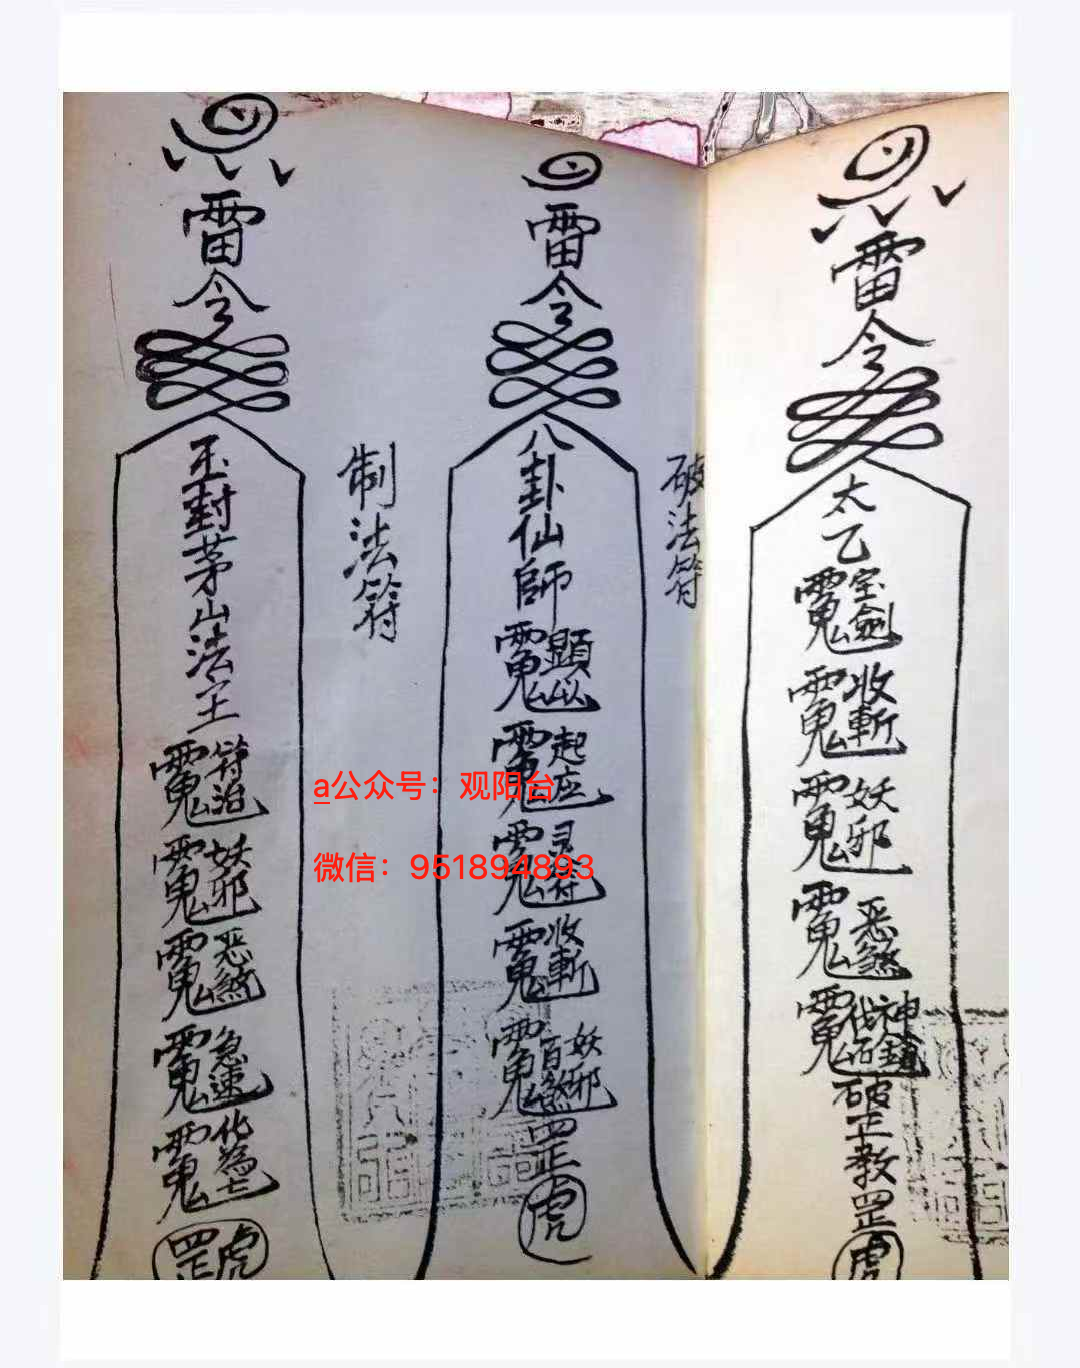 雷令
太乙
宝剑
收斬
妖邪
恶煞
神
破正教罡
虎
破法符
雷令
八卦仙師
顕
起
灵符
收斬
妖邪
百煞
罡
虎
制法符
雷令
玉封茅山法主
符治
妖邪
恶煞
急速
化為
罡虎
a公众号：观阳台
微信：951894893